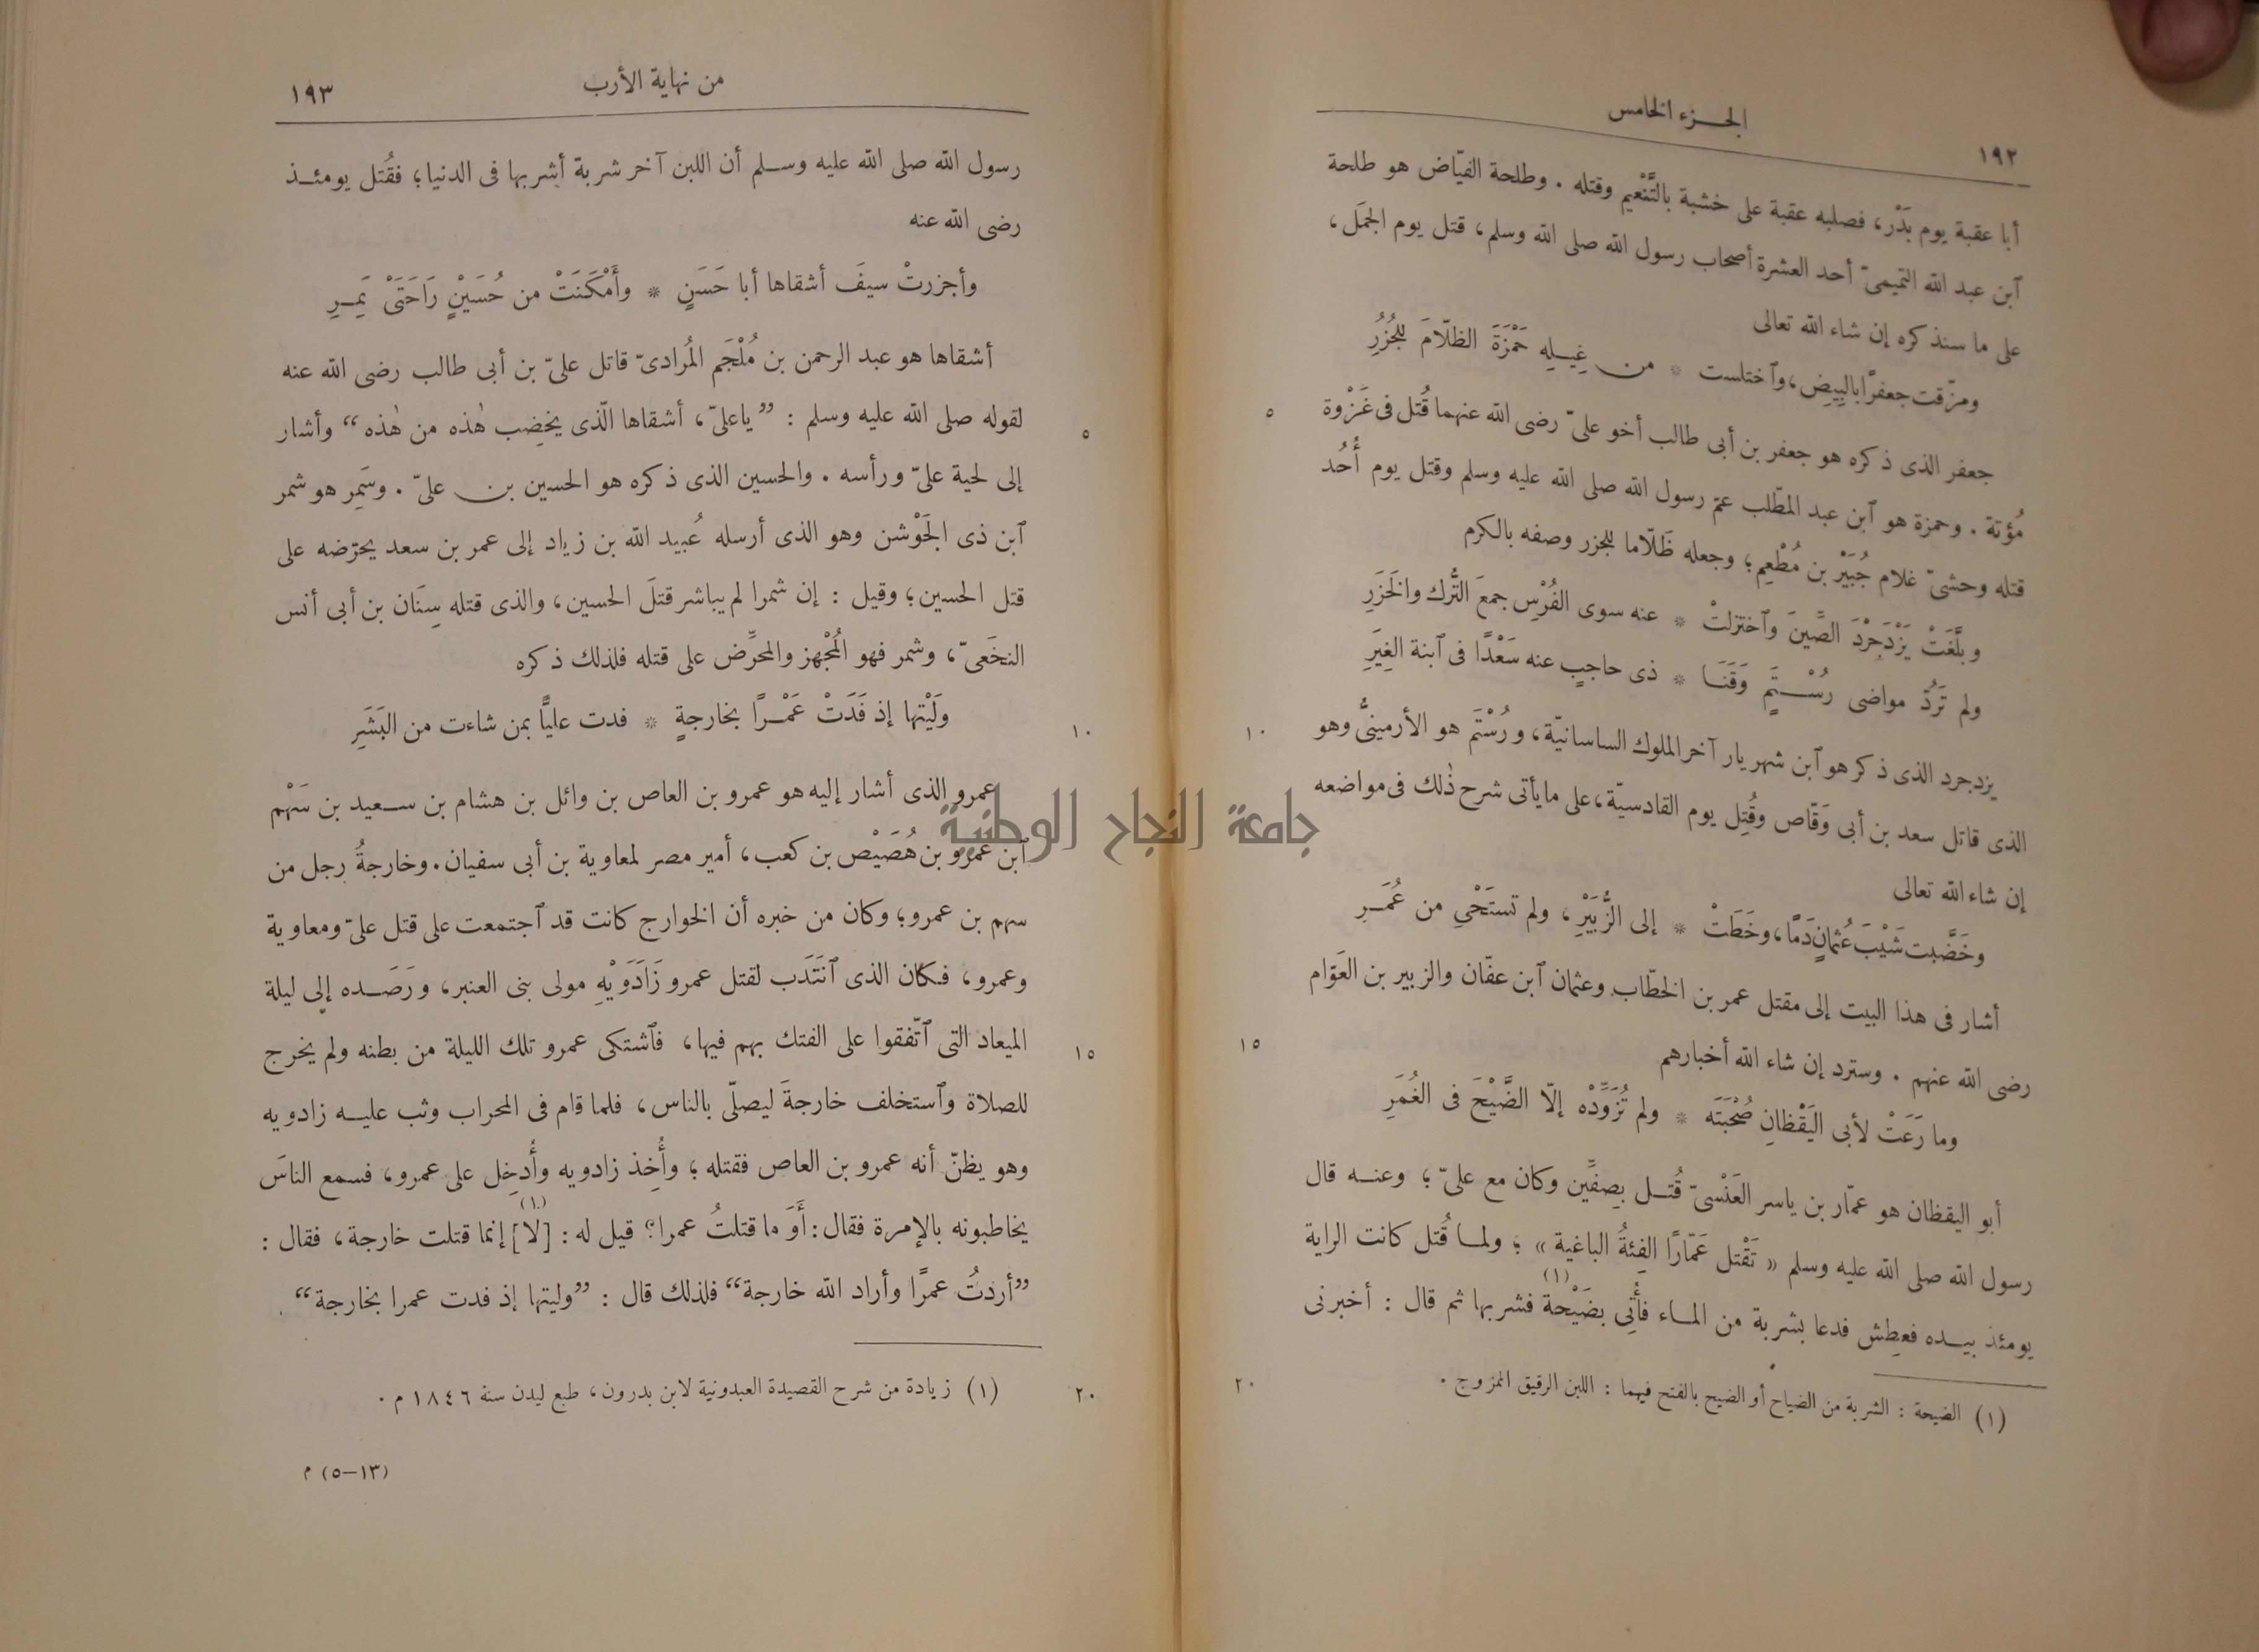 ١٩٢
الجزء الخامس
أبا عقبة يوم بَدْر، فصلبه عقبة على خشبة بالتَّنْعيم وقتله . وطلحة الفيّاض هو طلحة
آبن عبد الله التميمىّ أحد العشرة أصحاب رسول الله صلى الله وسلم، قتل يوم الجمَل،
على ما سنذكره إن شاء الله تعالى
ومزّقت جعفرًا بالبِيضِ، وٱختلست * من غِيلِه حَمْزَةَ الظلّامَ للجُزُرِ
جعفر الذى ذكره هو جعفر بن أبى طالب أخو علىّ رضى الله عنهما قُتل فى غَزْوة
مُؤتة . وحمزة هو آبن عبد المطّلب عمّ رسول الله صلى الله عليه وسلم وقتل يوم أُحُد
قتله وحشىّ غلام جُبَيْر بن مُطْعِم؛ وجعله ظَلّاما للجزر وصفه بالكرم
وبلَّغَتْ يَزْدَجِرْدَ الصِّينَ وٱختزلتْ * عنه سوى الفُرْسِ جمعَ التُّرك والخَزَرِ
ولم تَرُدّ مواضى رُسْتَمٍ وَقَنَا * ذى حاجبٍ عنه سَعْدًا فى آبنة الغِيَرِ
يزدجرد الذى ذكر هو آبن شهريار آخر الملوك الساسانيّة، ورُسْتَم هو الأرمينىُّ وهو
الذى قاتل سعد بن أبى وَقّاص وقُتِل يوم القادسيّة، على ما يأتى شرح ذٰلك فى مواضعه
إن شاء الله تعالى
وخَضَّبت شَيْبَ عُثمانٍ دَمًا، وخَطَتْ * إلى الزُّبَيْرِ، ولم تستَحْىِ من عُمَرِ
أشار فى هذا البيت إلى مقتل عمر بن الخطّاب وعثمان آبن عفّان والزبير بن العَوّام
رضى الله عنهم . وسترد إن شاء الله أخبارهم
وما رَعَتْ لأبى اليَقْظانِ صُحْبَتَه * ولم تُزَوِّدْه إلّا الضَّيْحَ فى الغُمَرِ
أبو اليقظان هو عمّار بن ياسر العَنْسىّ قُتل بِصِفِّين وكان مع علىّ؛ وعنه قال
رسول الله صلى الله عليه وسلم « تَقْتل عَمّارًا الفِئةُ الباغية » ؛ ولما قُتل كانت الراية
يومئذ بيده فعطِش فدعا بشربة من الماء فأُتِى بضَيْحة(١) فشربها ثم قال : أخبرنى
(١) الضيحة : الشربة من الضياح أو الضيح بالفتح فيهما : اللبن الرقيق الممزوج .
٥
١٠
١٥
٢٠
من نهاية الأرب
١٩٣
رسول الله صلى الله عليه وسلم أن اللبن آخر شربة أشربها فى الدنيا؛ فقُتل يومئذ
رضى الله عنه
وأجزرتْ سيفَ أشقاها أبا حَسَنٍ * وأَمْكَنَتْ من حُسَيْنٍ رَاحَتَىْ شَمِرِ
أشقاها هو عبد الرحمن بن مُلْجَم المُرادىّ قاتل علىّ بن أبى طالب رضى الله عنه
لقوله صلى الله عليه وسلم : ”ياعلىّ، أشقاها الّذى يخضِب هٰذه من هٰذه“ وأشار
إلى لحية علىّ ورأسه . والحسين الذى ذكره هو الحسين بن علىّ . وشَمِر هو شمر
آبن ذى الجَوْشن وهو الذى أرسله عُبيد الله بن زياد إلى عمر بن سعد يحرّضه على
قتل الحسين؛ وقيل : إن شمرا لم يباشر قتلَ الحسين، والذى قتله سِنَان بن أبى أنس
النخَعىّ، وشمر فهو المُجْهز والمحرِّض على قتله فلذلك ذكره
وَلَيْتها إذ فَدَتْ عَمْرًا بخارجةٍ * فدت عليًّا بمن شاءت من البَشَرِ
عمرو الذى أشار إليه هو عمرو بن العاص بن وائل بن هشام بن سعيد بن سَهْم
آبن عمرو بن هُصَيْص بن كعب، أمير مصر لمعاوية بن أبى سفيان. وخارجةُ رجل من
سهم بن عمرو؛ وكان من خبره أن الخوارج كانت قد ٱجتمعت على قتل علىّ ومعاوية
وعمرو، فكان الذى ٱنتَدَب لقتل عمرو زَاَدَوَيْهِ مولى بنى العنبر، ورَصَده إلى ليلة
الميعاد التى ٱتّفقوا على الفتك بهم فيها، فٱشتكى عمرو تلك الليلة من بطنه ولم يخرج
للصلاة وٱستخلف خارجةَ ليصلّى بالناس، فلما قام فى المحراب وثب عليه زادويه
وهو يظنّ أنه عمرو بن العاص فقتله؛ وأُخِذ زادويه وأُدخِل على عمرو، فسمع الناسَ
يخاطبونه بالإمرة فقال: أَوَ ما قتلتُ عمرا؟ قيل له: [لا](١) إنما قتلت خارجة، فقال :
”أردتُ عمرًا وأراد الله خارجة“ فلذلك قال : ”وليتها إذ فدت عمرا بخارجة“
(١) زيادة من شرح القصيدة العبدونية لابن بدرون، طبع ليدن سنة ١٨٤٦ م .
٥
١٠
١٥
٢٠
(١٣–٥) م
جامعة النجاح الوطنية